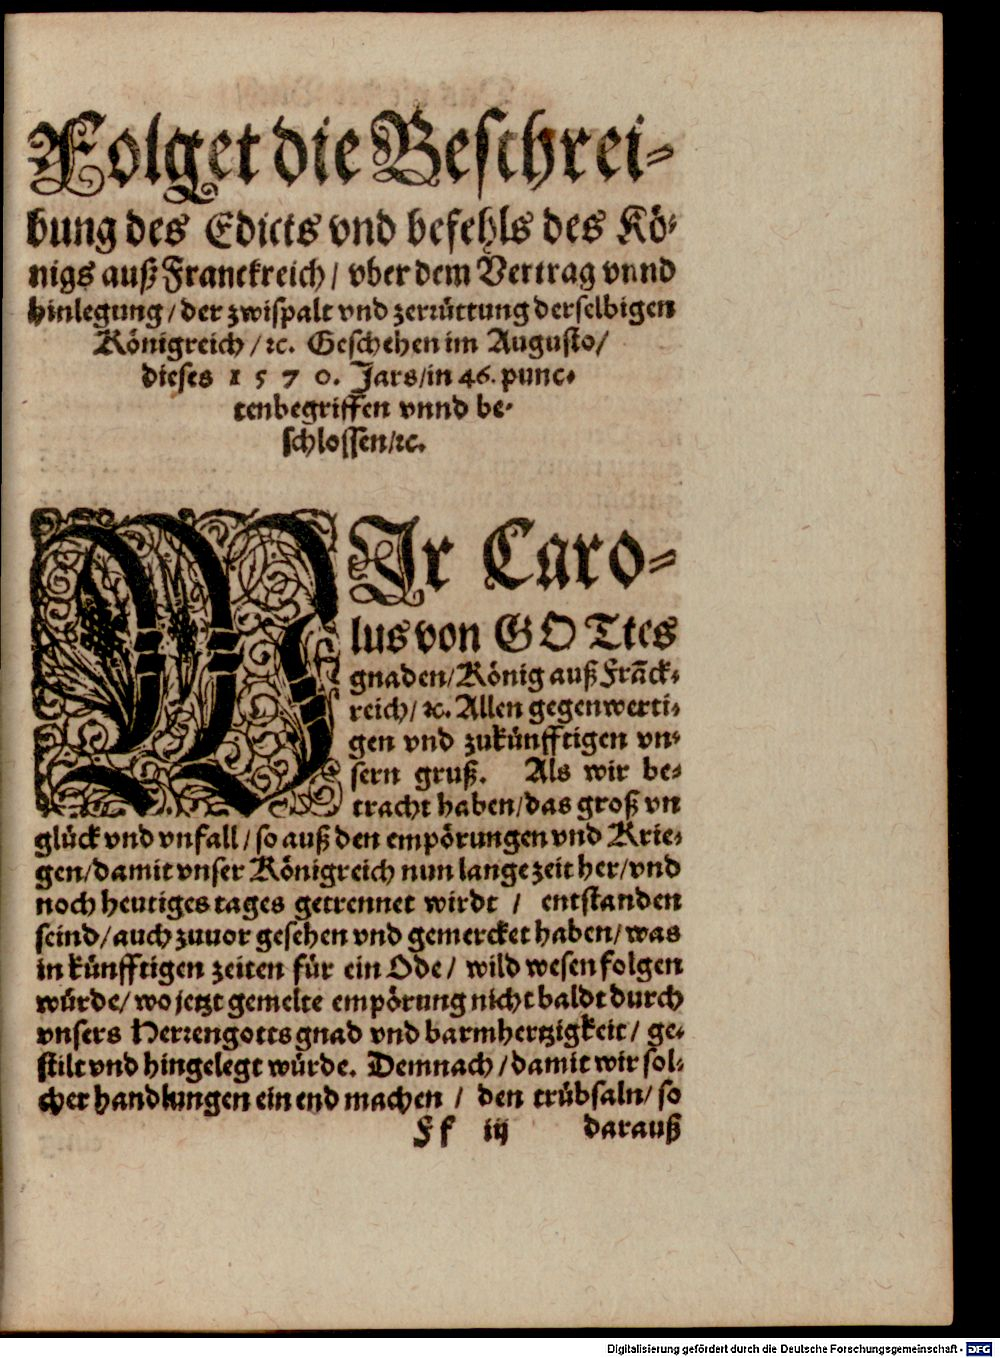 Folget die Beschrei-
bung des Edicts vnd befehls des Kö-
nigs auß Franckreich/ vber dem Vertrag vnnd
hinlegung/ der zwispalt vnd zerrüttung derselbigen
Königreich/ ꝛc. Geschehen im Augusto/
dieses 1570. Jars/ in 46. punc-
ten begriffen vnnd be-
schlossen/ ꝛc.
WIr Caro-
lus von GOTtes
gnaden/ König auß Frãck-
reich/ ꝛc. Allen gegenwerti-
gen vnd zukünfftigen vn-
sern gruß. Als wir be-
tracht haben/ das groß vn
glück vnd vnfall/ so auß den empörungen vnd Krie-
gen/ damit vnser Königreich nun lange zeit her/ vnd
noch heutiges tages getrennet wirdt/ entstanden
seind/ auch zuuor gesehen vnd gemercket haben/ was
in künfftigen zeiten für ein Ode/ wild wesen folgen
würde/ wo jetzt gemelte empörung nicht baldt durch
vnsers Herrengotts gnad vnd barmhertzigkeit/ ge-
stilt vnd hingelegt würde. Demnach/ damit wir sol-
cher handlungen ein end machen/ den trübsaln/ so
Ff iij darauß
Digitalisierung gefördert durch die Deutsche Forschungsgemeinschaft - DFG